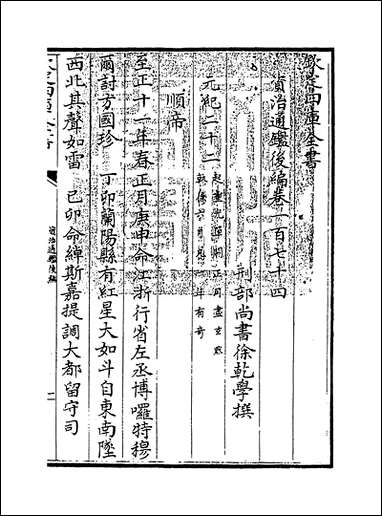 欽定四庫全書
資治通鑑後編卷一百七十四
刑部尚書徐乾學撰
元紀二十二 起重光單閼正月盡玄黓
執徐六月凡一年有奇
順帝
至正十一年春正月庚申命江浙行省左丞博囉特穆
爾討方國珍 丁卯蘭陽縣有紅星大如斗自東南墜
西北其聲如雷 己卯命綽斯嘉提調大都留守司
資治通鑑後編